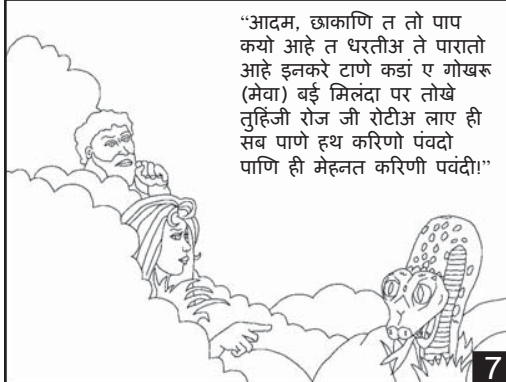 “आदम, छाकाणि त तो पाप
कयो आहे त धरतीअ ते पारातो
आहे इनकरे टाणे कडां ए गोखरू
(मेवा) बई मिलंदा पर तोखे
तुहिंजी रोज जी रोटीअ लाए ही
सब पाणे हथ करिणो पंवदो
पाणि ही मेहनत करिणी पवंदी!”
7